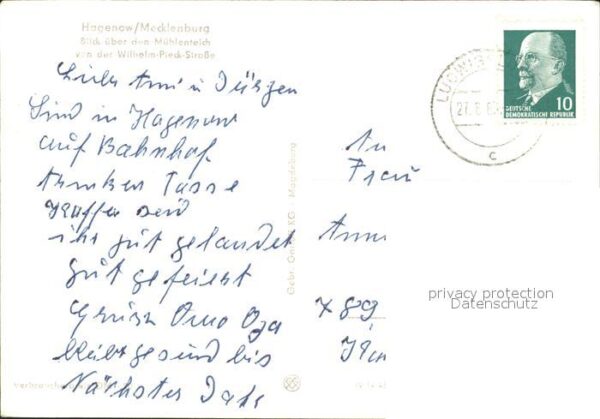 Hagenow/Mecklenburg
Blick über den Mühlenteich
von der Wilhelm-Pieck-Straße
Liebe Anni u Jürgen
Sind in Hagenow
auf Bahnhof
trinken Tasse
Kaffee seid
ihr gut gelandet
gut gefeiert
Gruss Omo Opa
bleibt gesund bis
Nächstes Jahr
An
Frau
Anni
789
LUDWIGS
27.
c
10
DEUTSCHE
DEMOKRATISCHE REPUBLIK
Gebr. KG Magdeburg
privacy protection
Datenschutz